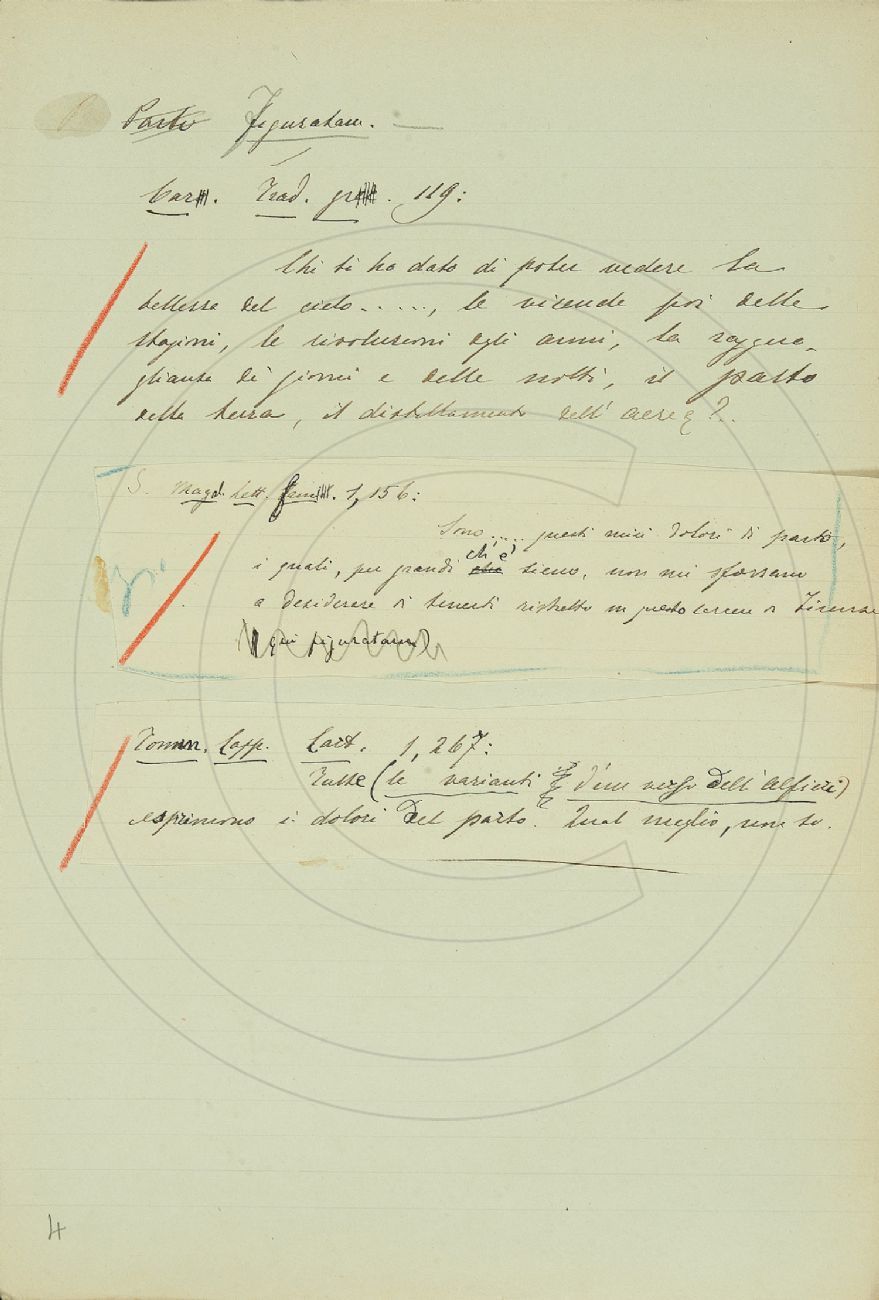 Parto Figuratam. —
Car. Trad. gr. 119:
Chi ti ha dato di poter vedere la
bellezza del cielo....., le vicende poi delle
stagioni, le rivoluzioni degli anni, la raggua-
glianza de' giorni e delle notti, il parto
della terra, il distillamento dell' aere?..
S. Magal. Lett. fam. 1, 156:
Sono,.... questi miei dolori di parto,
i quali, per grandi ch' e' sieno, non mi sforzano
a desiderare di tenerti ristretto in questo carcere di Firenze
(qui figuratam)
Tomm. Capp. Lett. 1, 267:
Tutte (le varianti d'un verso dell' Alfieri)
esprimono i dolori del parto. Qual meglio, non so.
4